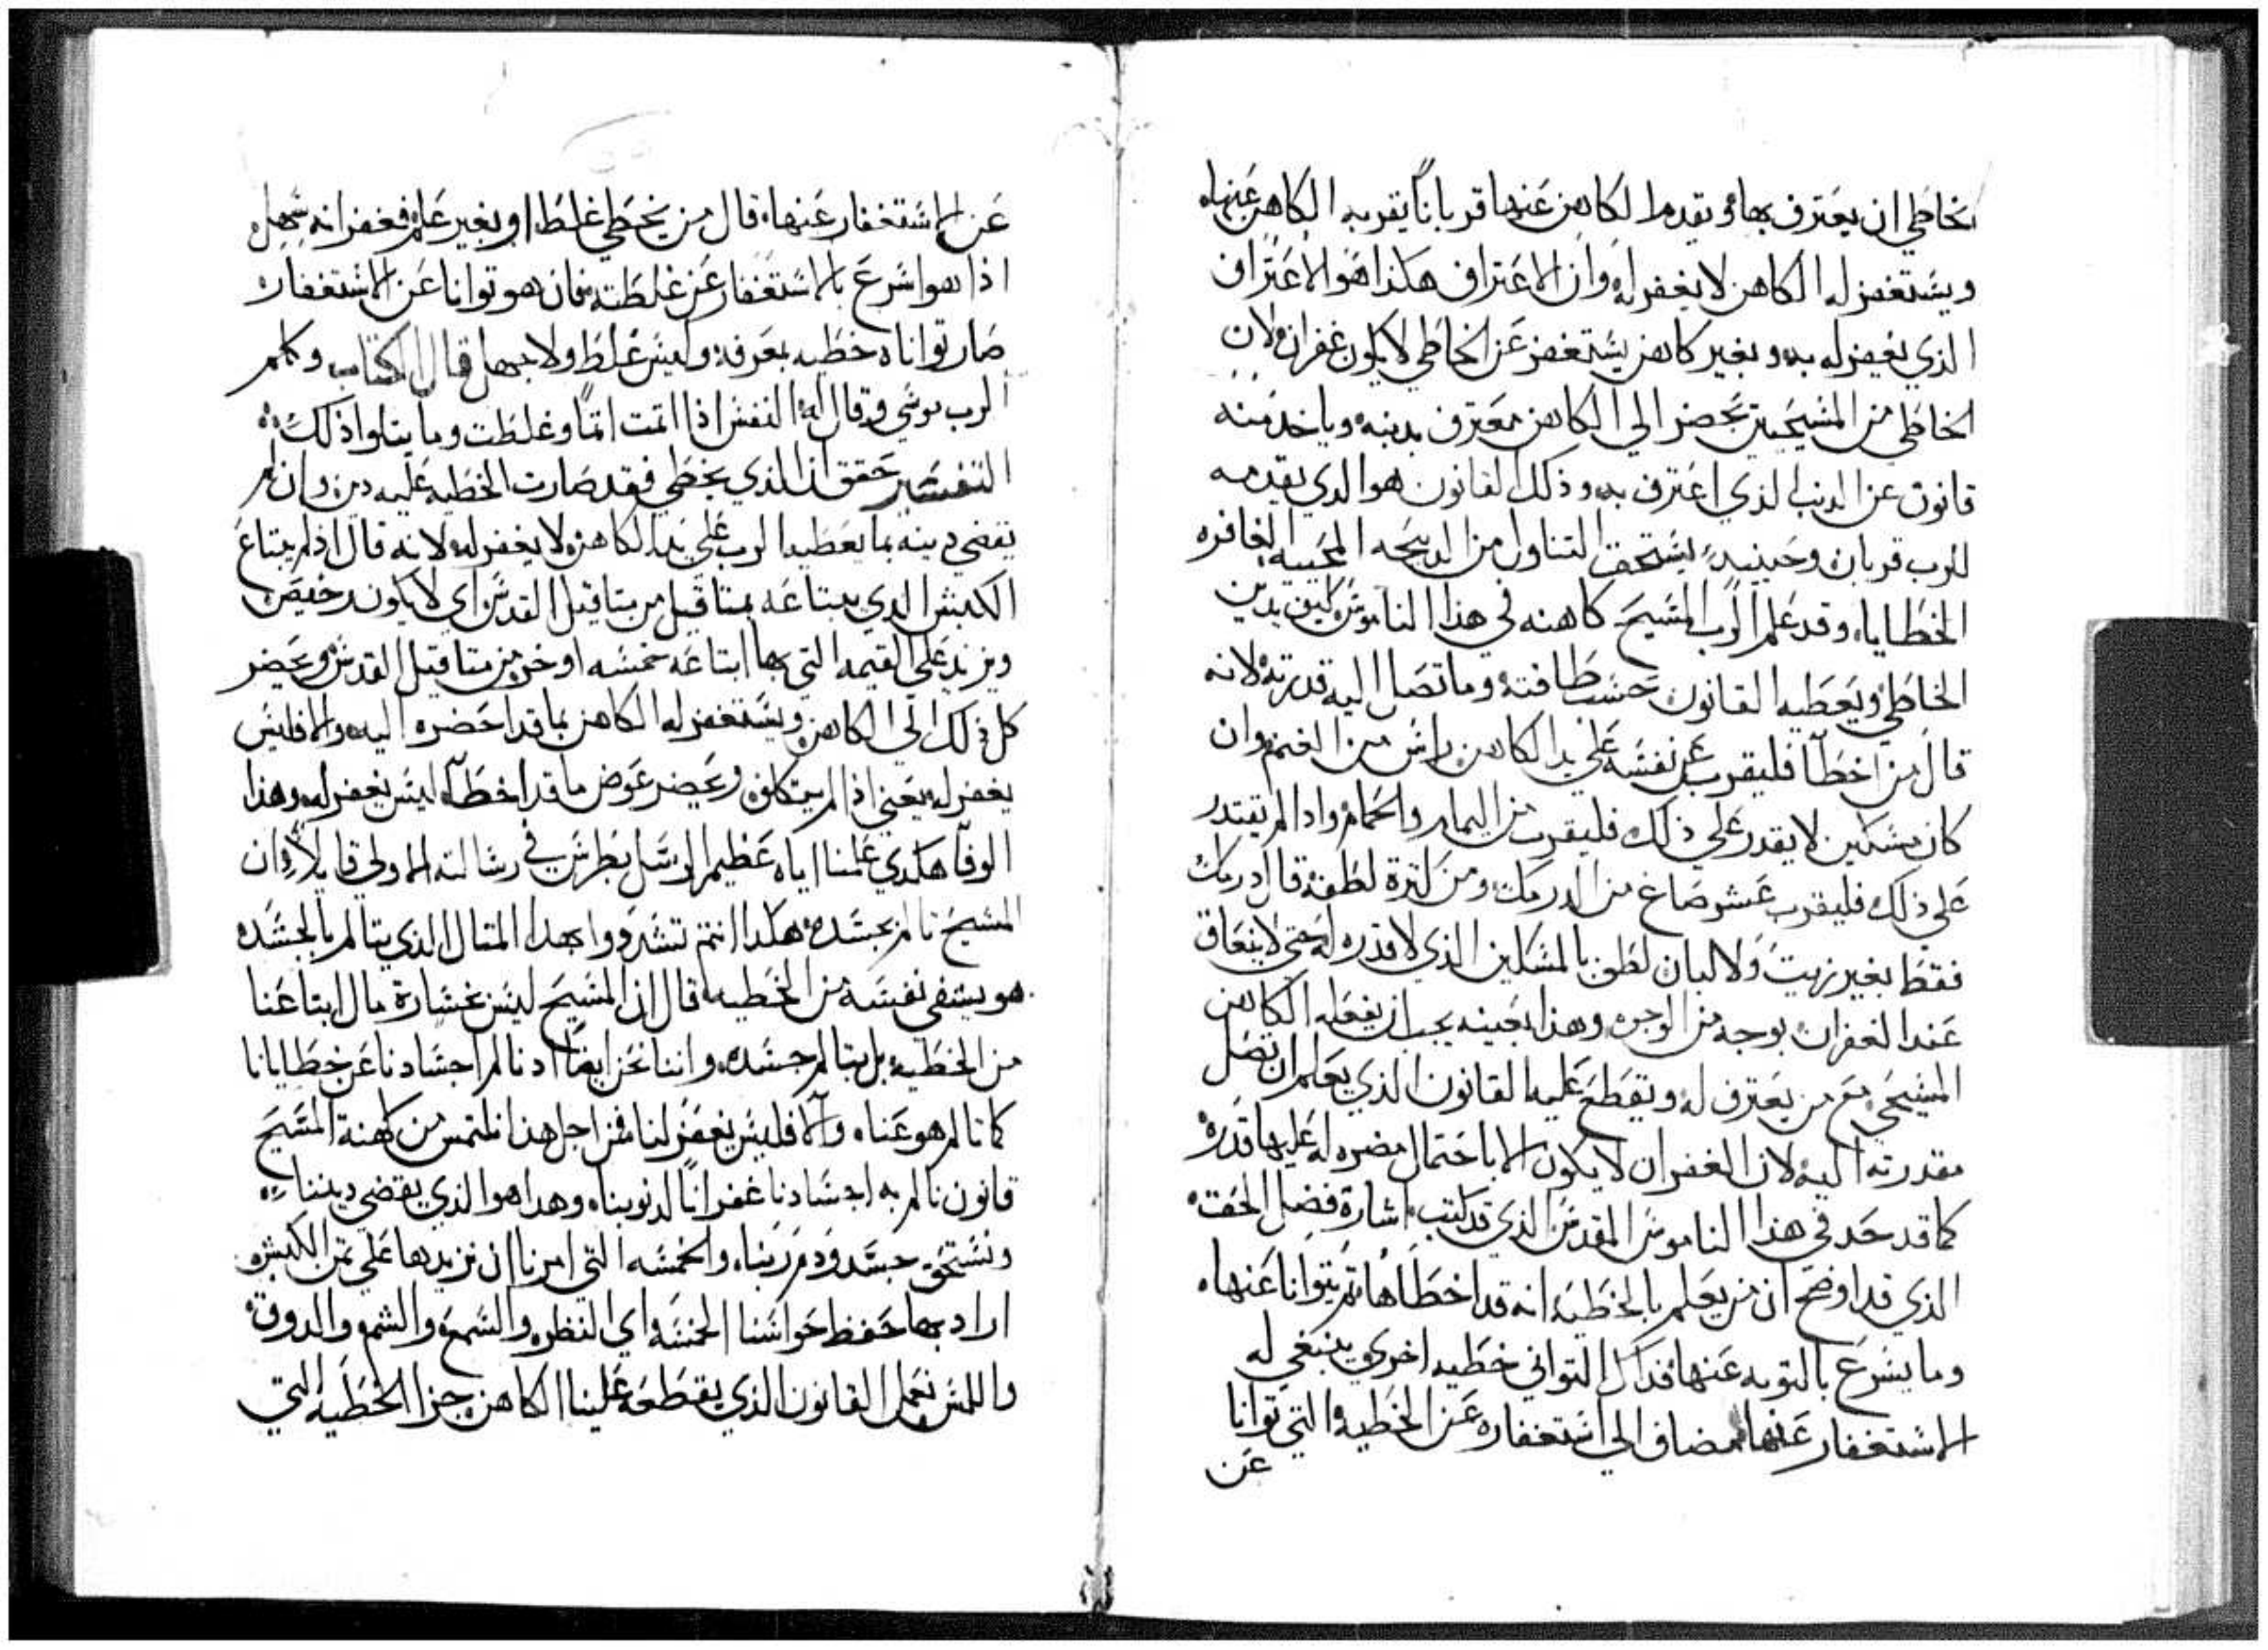 لخاطي ان يعترف بها ويقدم الكاهن عنها قرباناً يقربه الكاهن عنه
ويستغفر له الكاهن لا يغفر له وان الاعتراف هكذا هو الاعتراف
الذي يغفر له به وبغير كاهن يستغفر عن الخاطي لا يكون غفران لان
الخاطي من المسيحيين يحضر الي الكاهن معترف بدنبه وياخد منه
قانون عن الدنب الذي اعترف به وذلك القانون هو الدي يقدمه
للرب قربان وحينيد يستحق التناول من الدبيحه المحييه الغافره
الخطايا وقد علم الرب المسيح كاهنه في هذا الناموس كيف يدين
الخاطي ويعطيه القانون حسب طاقته وما تصل اليه قدرته لانه
قال من اخطا فليقرب عن نفسه علي يد الكاهن راس من الغنم وان
كان مسكين لا يقدر علي ذلك فليقرب من اليمام والحمام وادا لم يقتدر
علي ذلك فليقرب عشر صاع من الدرمك ومن كثرة لطفه قال درمك
فقط بغير زيت ولا لبان لطف بالمسكين الذي لا قدره له حتي لا يتعاق
عند الغفران بوجه من الوجوه وهذا بعينه يجب ان يفعله الكاهن
المسيحي مع من يعترف له ويقطع عليه القانون الذي يعلم ان تصل
مقدرته اليه لان الغفران لا يكون الا باحتمال مضره له عليها قدره
كما قد حد في هذا الناموس المقدس الذي قد كتب اشارة فضل الحق
الذي قد اوضح ان من يعلم بالخطيه انه قد اخطاها ثم يتوانا عنها
وما يسرع بالتوبه عنها فداك التواني خطيه اخري ينبغي له
الاستغفار عنها مضاف الي استغفاره عن الخطيه التي توانا
عن
عن الاستغفار عنها قال من يخطي غلط او بغير علم فغفرانه سهل
اذا هو اسرع بالاستغفار عن غلطته فان هو توانا عن الاستغفار
صار تواناه خطيه بمعرفه وليس غلط ولا جهل قال الكتاب وكلم
الرب موسي وقال له النفس اذا اثمت اثماً وغلطت وما يتلوا ذلك
التفسير حقق ان الذي يخطي فقد صارت الخطيه عليه دين وان لم
يقضي دينه بما يعطيه الرب علي يد الكاهن لا يغفر له لانه قال اذا لم يبتاع
الكبش الدي يبتاعه بمثاقيل من مثاقيل القدس اي لا يكون رخيص
ويزيد علي القيمه التي بها ابتاعه خمسه اوخر من مثاقيل القدس ويحضر
كل ذلك الي الكاهن ويستغفر له الكاهن بما قد احضره اليه والا فليس
يغفر له يعني اذا لم يتكلف ويحضر عوض ما قد اخطا ليس يغفر له وهذا
الوفا هكدي علمنا اياه عظيم الرسل بطرس في رسالته الاولي قايلاً ان
المسيح تالم بجسده هكدا انتم تشدوا بهدا المثال الذي يتالم بالجسد
هو يشفي نفسه من الخطيه قال ان المسيح ليس بخسارة مال ابتاعنا
من الخطيه بل بتالم جسده واننا نحن ايضاً ادا نالم اجسادنا عن خطايانا
كما تالم هو عنا والا فليس يغفر لنا فمن اجل هذا نلتمس من كهنة المسيح
قانون نالم به اجسادنا غفراناً لدنوبنا وهدا هو الذي يقضي ديننا
ونستحق جسد ودم ربنا والخمسه التي امرنا ان نزيدها علي ثمن الكبش
اراد بها حفظ حواسنا الخمسه اي النظر والسمع والشم والدوق
واللمس نعمل القانون الذي يقطعه علينا الكاهن جزا الخطيه التي